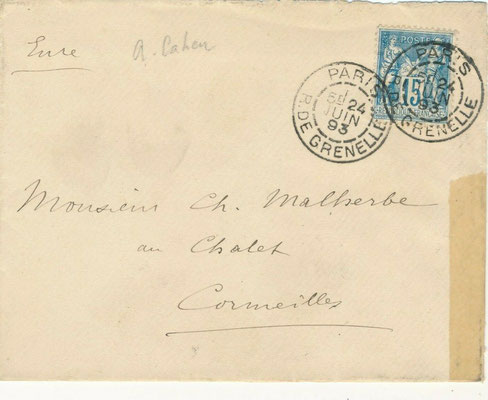 Eure
A. Cahen
POSTE
15
PARIS
6E 24
JUIN
93
R. DE GRENELLE
PARIS
24
JUIN
93
GRENELLE
Monsieur Ch. Malherbe
au Chalet
Cormeilles